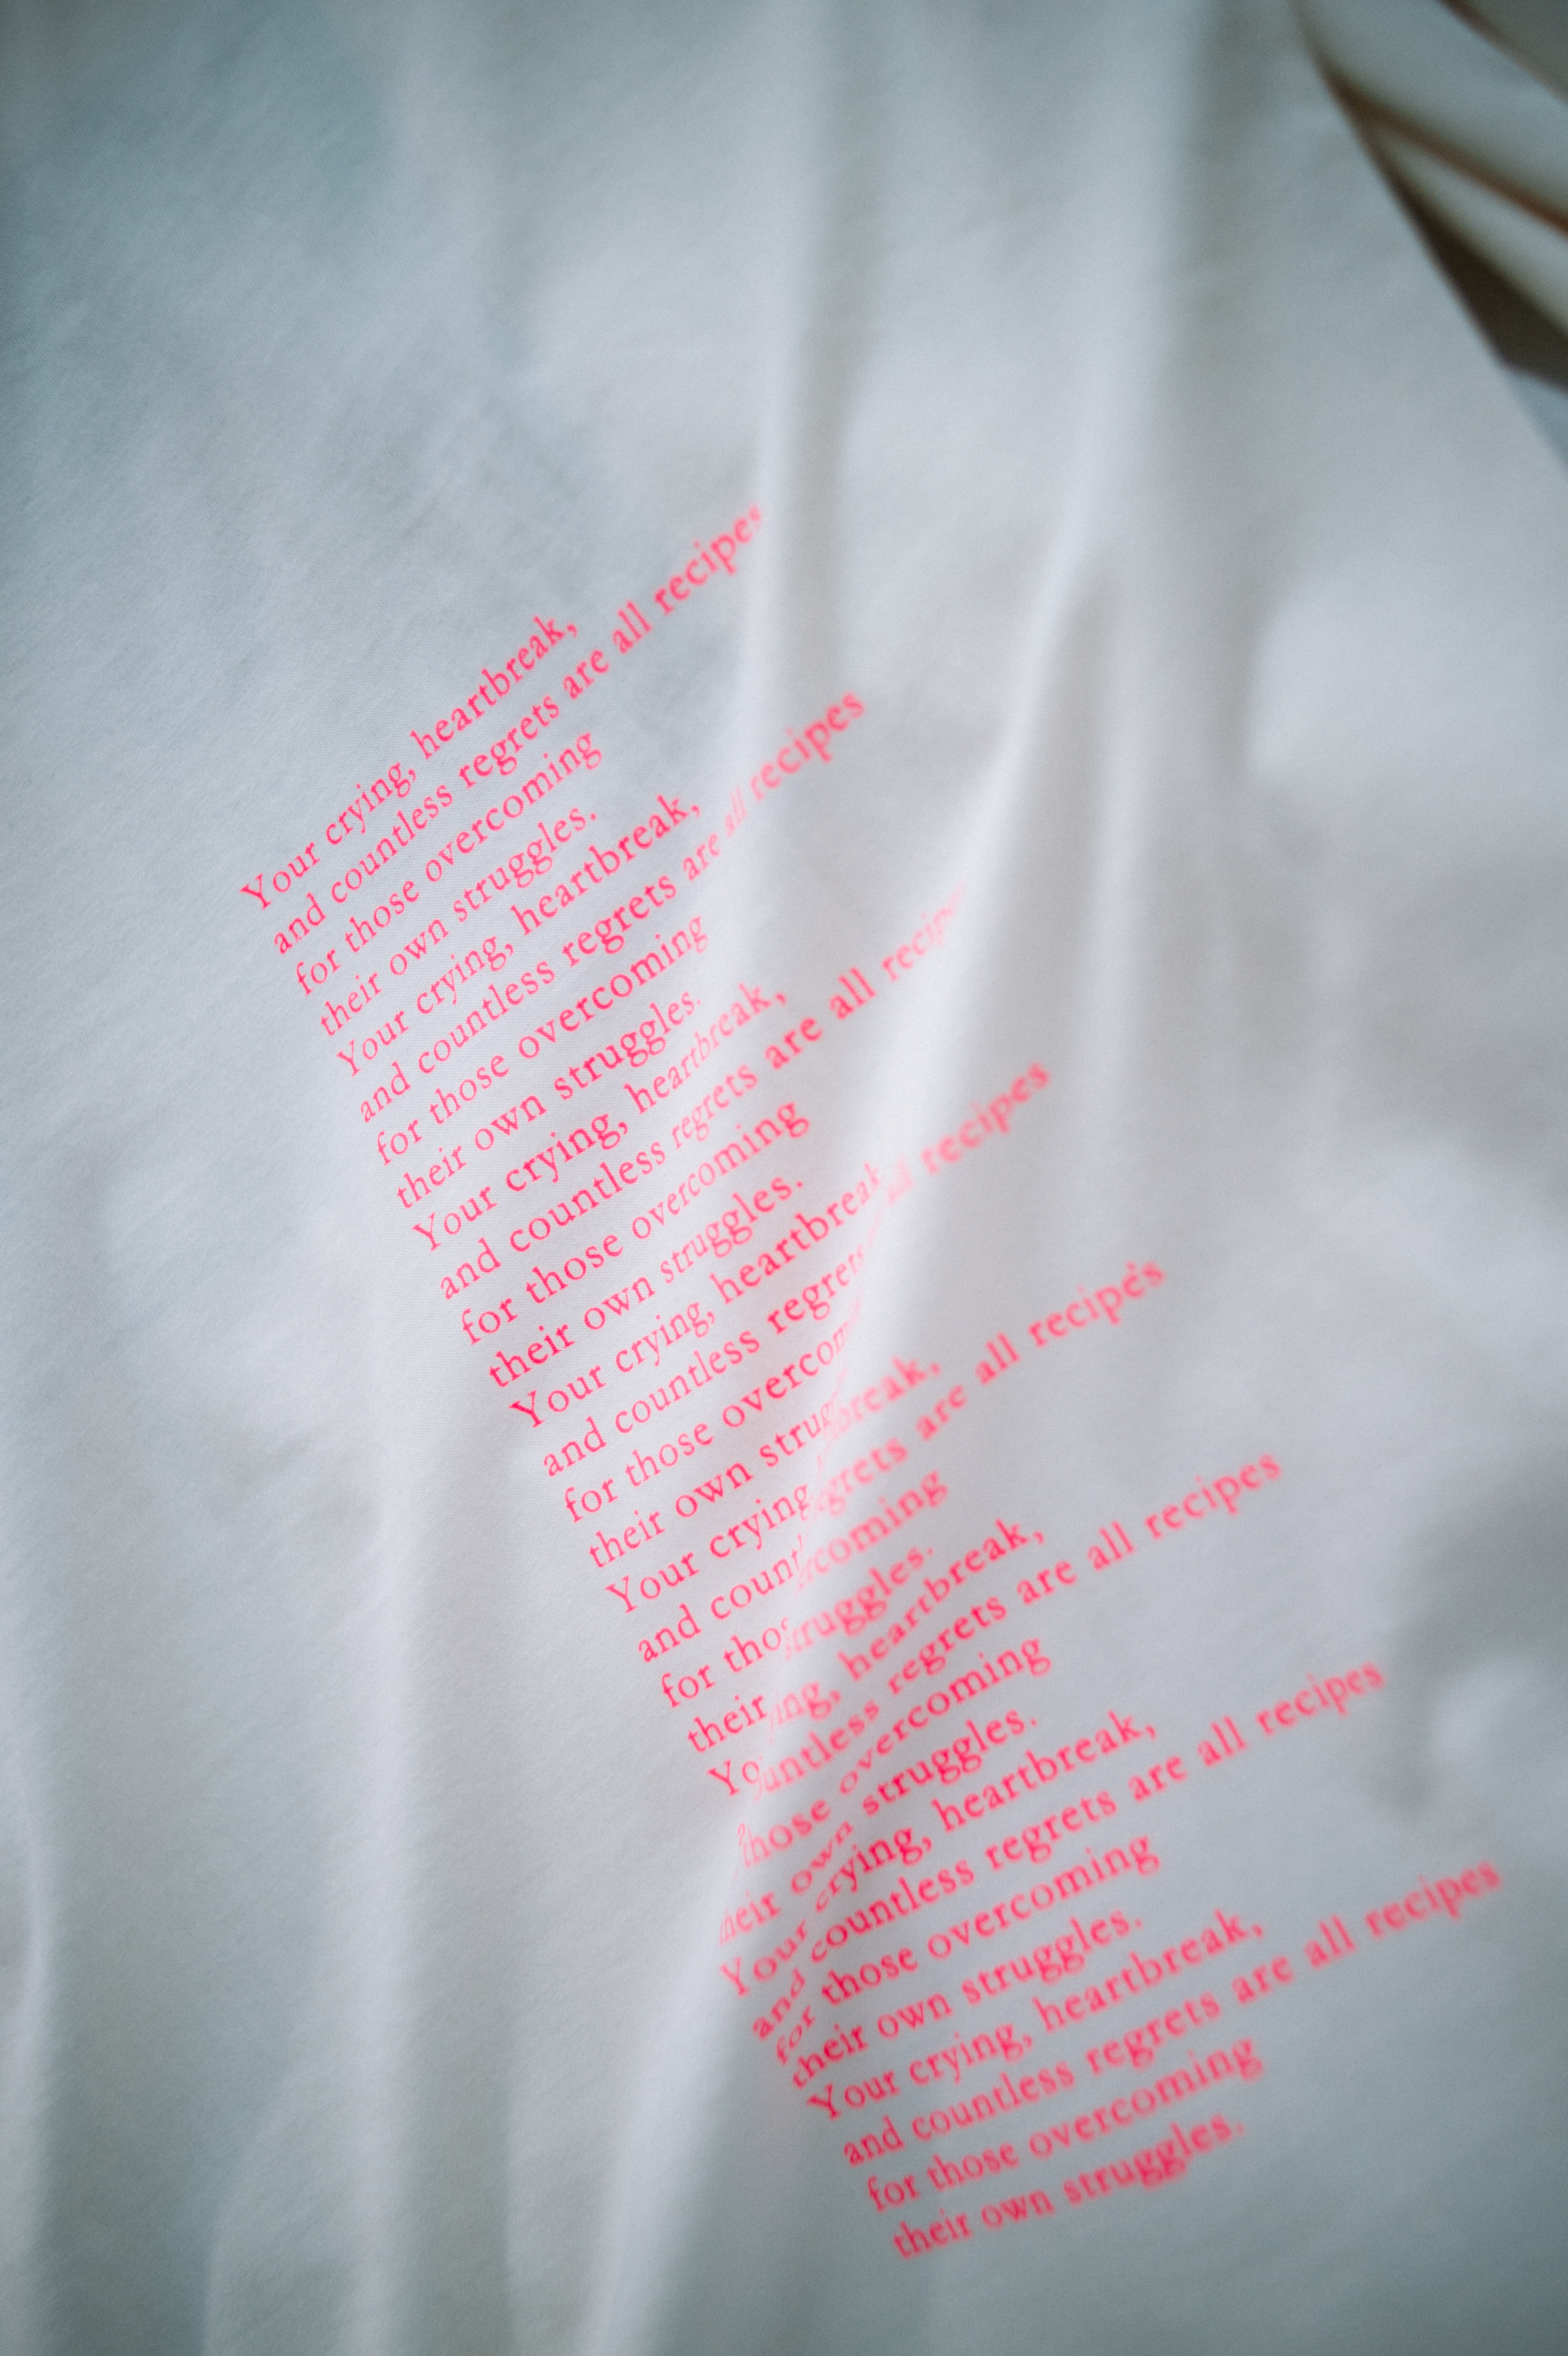 Your crying, heartbreak,
and countless regrets are all recipes
for those overcoming
their own struggles.
Your crying, heartbreak,
and countless regrets are all recipes
for those overcoming
their own struggles.
Your crying, heartbreak,
and countless regrets are all
for those overcoming
their own struggles.
Your crying, heartbreak
and countless regrets all recipes
for those
their own
Your crying
and are all recipes
for
their struggles.
heartbreak,
regrets are all recipes
those overcoming
their own struggles.
Your crying, heartbreak,
and countless regrets are all recipes
for those overcoming
their own struggles.
Your crying, heartbreak,
and countless regrets are all recipes
for those overcoming
their own struggles.